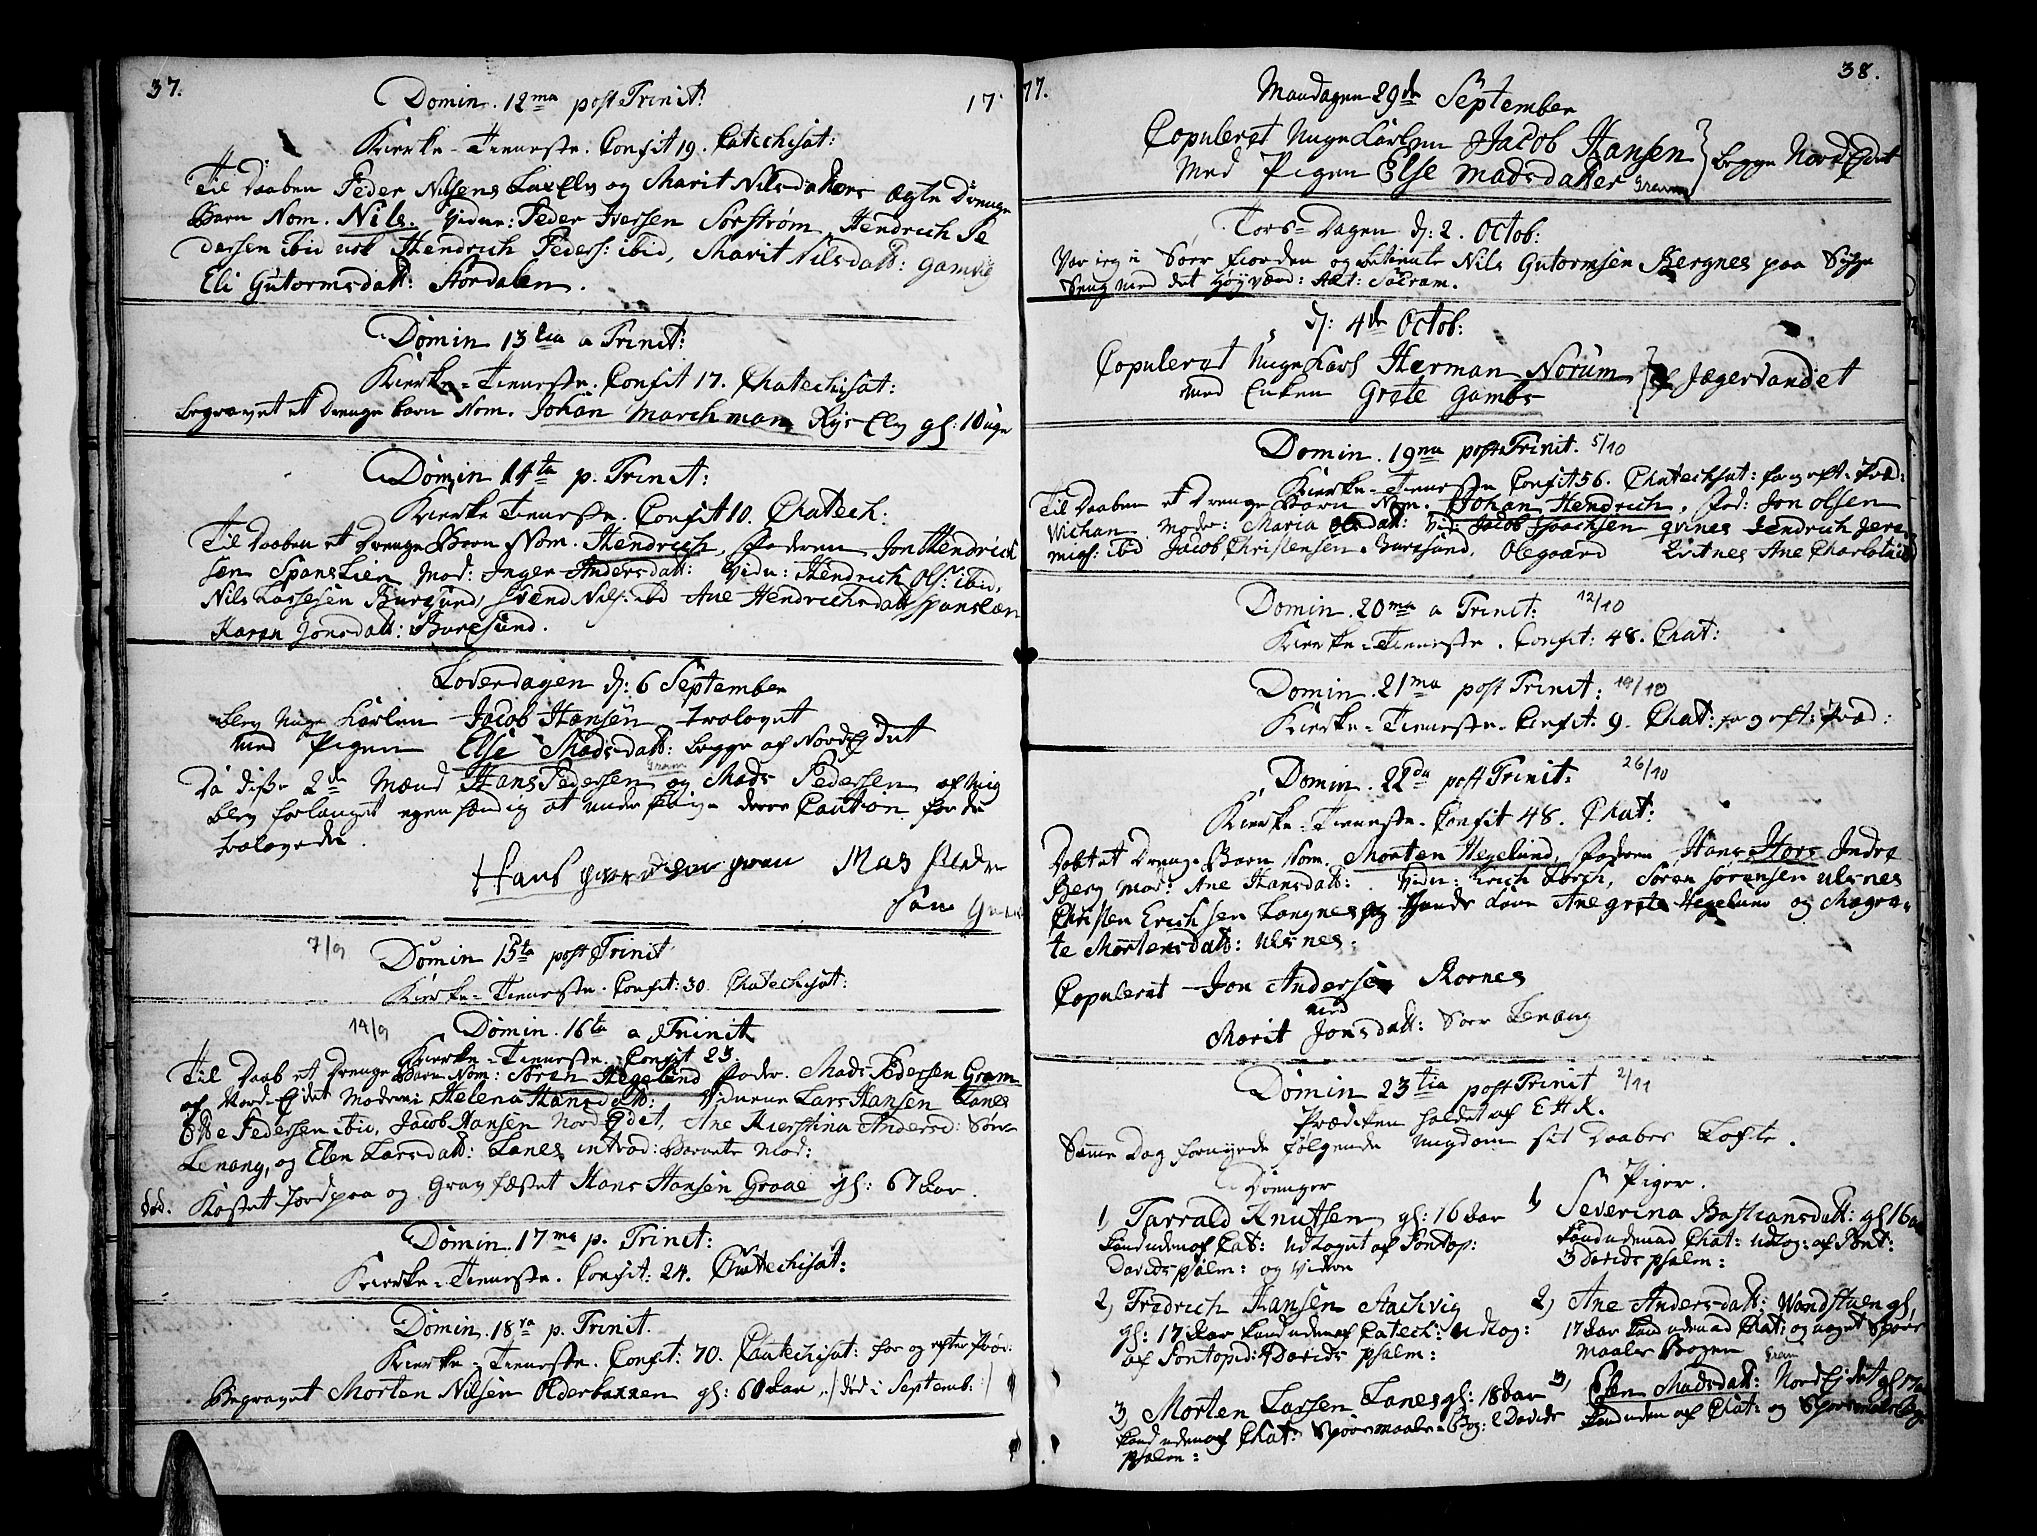 37.
17
Domin. 12ma post Trinit:
Kierke-Tieneste. Confit 19. Catechisat:
Til Daaben Peder Nilsens LaxElv og Marit Nilsdatters Ægte Drenge
Barn Nom. Nils. Vidne: Peder Iversen Sørstrøm, Hendrich Pe
dersen ibid Hendrich Peders: ibid, Marit Nilsdatt: Gamvig
Eli Gutormsdatt: Stordalen.
Domin 13tia a Trinit:
Kierke-Tieneste. Confit 17. Chatechisat:
begravet et Drenge barn Nom. Johan Marchman RysElv gl: 10 uge
Domin 14ta p. Trinit:
Kierke Tieneste. Confit 10. Chatech:
Til Daaben et Drenge Barn Nom. Hendrich, Faderen Jon Hendrich
sen Spanslien Mod: Inger Andersdatt: Vidn: Hendrich Ols: ibid,
Nils Lassesen Buresund, Svend Nils: ibd Ane Hendrichsdatt Spanslien
Karen Jonsdatt: Buresund.
Løverdagen d: 6 September
blev Unge Karlen Jacob Hansen Trolovet
med Pigen Else Madsdatt: begge af NordEjdet
Gram
Da disse 2de Mænd Hans Pedersen og Mads Pedersen af Mig
blev forlanget egenhændig at underskrive deres Caution for de
trolovede.
Hans Pedersen gram Mas Peder
søn Gram
7/9
Domin 15ta post Trinit
Kierke-Tieneste. Confit: 30. Chatechisat:
14/9
Domin. 16ta a Trinit
Kierke-Tieneste. Confit 23.
Til Daab et Drenge Barn Nom: Søren Hegelund Fader. Mads Pedersen Gram
af Nord-Ejdet Moderen Helena Hansdatt: Vidnerne Lars Hansen Lanes
Peder Pedersen ibid, Jacob Hansen NordEjdet, Ane Kierstina Andersd: Sør-
Lenang, og Elen Larsdatt: Lanes introd: Barnets Mod:
død. Kastet Jord paa og Gravfæstet Hans Hansen Graae gl: 67 Aar.
Domin. 17ma p. Trinit:
Kierke-Tieneste. Confit: 24. Chatechisat:
Domin. 18va p. Trinit.
Kierke-Tieneste. Confit: 70. Chatechisat: for og efter Præd:
Begravet Morten Nilsen Olderbakken gl: 60 Aar. /: død i Septemb: /
17.
38.
Mandagen 29de September
Copuleret Unge Karlen Jacob Hansen
Med Pigen Else Madsdatter begge NordEjdet
Gram
Tors-Dagen d: 2. Octob:
Var jeg i Sørfiorden og betiente Nils Gutormsen Bergnes paa Syge
Seng med det Høyværd: Alt: Sacram.
d: 4de Octob:
Copuleret Unge Karl Herman Norum
med Enken Grete Gambs af Jægervandet
Domin. 19na post Trinit. 5/10
Kierke-Tieneste Confit 56. Chatechisat: for og eft: Præd:
Til Daaben et Drenge Barn Nom. Johan Hendrich, Fad: Jon Olsen
Vichan Moder: Maria Olsdatt: Vid: Jacob Joachsen Qvines Hendrich Jere-
mias: ibd Jacob Christensen Buresund, Olegaard Ane Charlota ibid
Domin. 20ma a Trinit: 12/10
Kierke-Tieneste. Confit: 48. Chat:
Domin. 21ma post Trinit: 19/10
Kierke-Tieneste. Confit. 9. Chat: for og eft: Præd:
Domin. 22da post Trinit: 26/10
Kierke-Tieneste. Confit 48. Chat:
Døbt et Drenge Barn Nom. Morten Hegelund, Faderen Hans Hors Indre
Berg Mod: Ane Hansdatt: Vidn: Erich Borch, Søren Sørensen Ulsnes
Christen Erichsen Langnes og Ane Grete Hegelund og Magre-
te Mortensdatt: Ulsnes.
Copuleret Jon Andersen Kornes
med
Marit Jonsdatt: Sør Lenang
Domin 23tia post Trinit 2/11
Præditen holdet af E H K.
Samme Dag fornyede følgende Ungdom sit Daabes Løfte.
Drenger
1, Tarrald Knutsen gl: 16 Aar
kand udenad Cat: Udtoget af Pontop:
Davids psalm: og Viser
2, Fredrich Hansen Stachvig
gl: 17 Aar kand udenad Catech: Udtog:
af Pontopid: 4 Davids psalm:
3, Morten Larsen Lanes gl: 18 Aar
kand udenad Chat: Spørsmaals-Bog: 2 Davids
psalm:
Piger.
1, Severina Bastiansdatt: gl 16 Aar
kand udenad Chat: Udtog: af Pont:
3 Davids psalm:
2, Ane Andersdatt: Vandstuen gl,
17 Aar kand udenad Chat: og noget Spørs
maals Bogen
Gram
3, Elen Madsdatt: NordEjdet gl 17 Aar
kand uden af Chat: og Spørsmaals Bog.